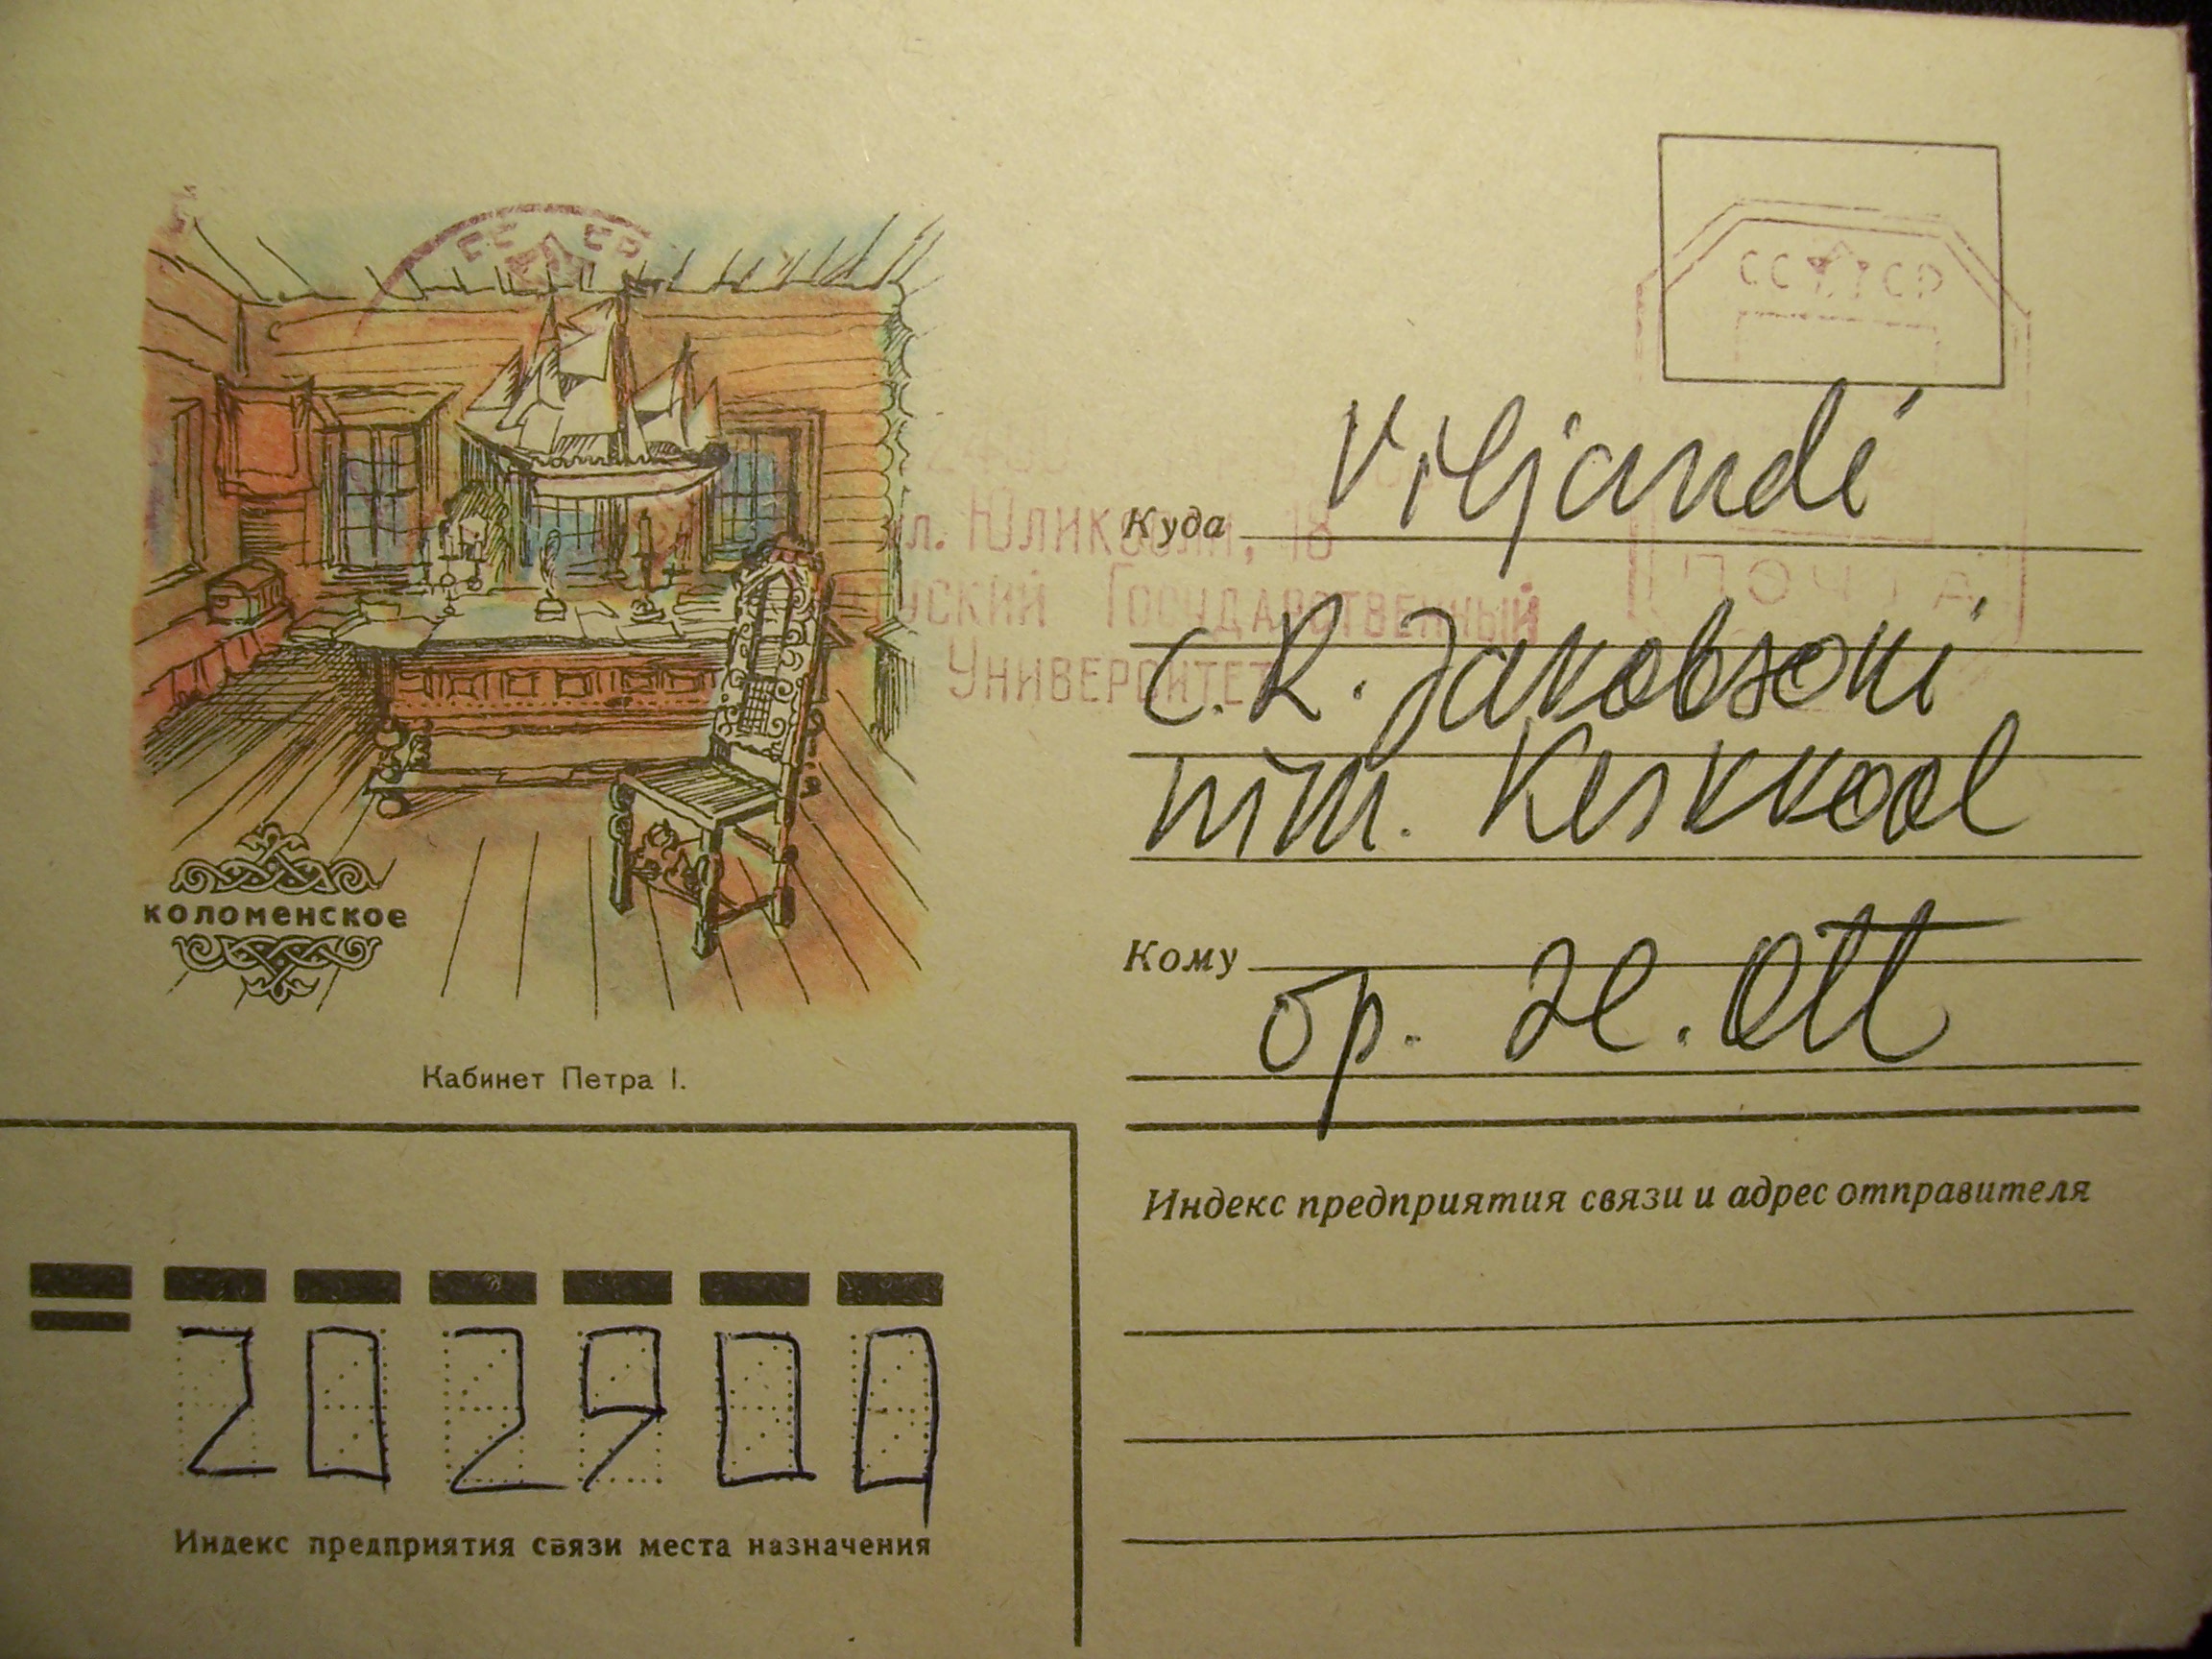 СССР
СССР
Viljandi
Куда
ул. Юликооли, 18
Государственный
Университет
C. R. Jakobsoni
nim. Keskkool
ПОЧТА
коломенское
Кабинет Петра I.
Кому
õp. H. Ott
Индекс предприятия связи и адрес отправителя
202900
Индекс предприятия связи места назначения